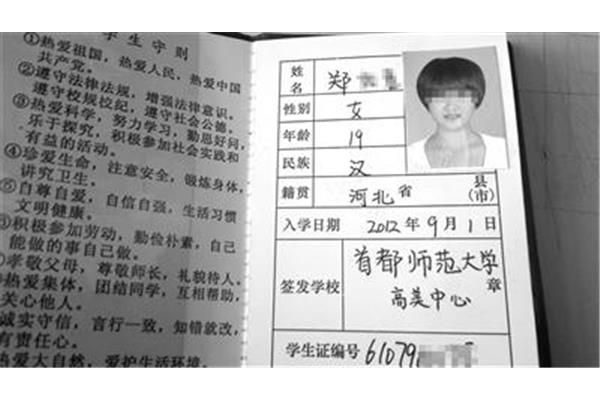 学生守则
①热爱祖国，热爱人民，热爱中国
共产党。
②遵守法律法规，增强法律意识。
遵守校规校纪，遵守社会公德。
③热爱科学，努力学习，勤思好问，
乐于探究，积极参加社会实践和
有益的活动。
④珍爱生命，注意安全，锻炼身体，
讲究卫生。
⑤自尊自爱，自信自强，生活习惯
文明健康。
积极参加劳动，勤俭朴素，自己
能做的事自己做。
孝敬父母，尊敬师长，礼貌待人。
热爱集体，团结同学，互相帮助，
关心他人。
诚实守信，言行一致，知错就改，
有责任心。
热爱大自然，爱护生活环境。
姓名 郑
性别 女
年龄 19
民族 汉
籍贯 河北 省 县(市)
入学日期 2012 年 9 月 1 日
签发学校 首都师范大学 章
高美中心
学生证编号 61079